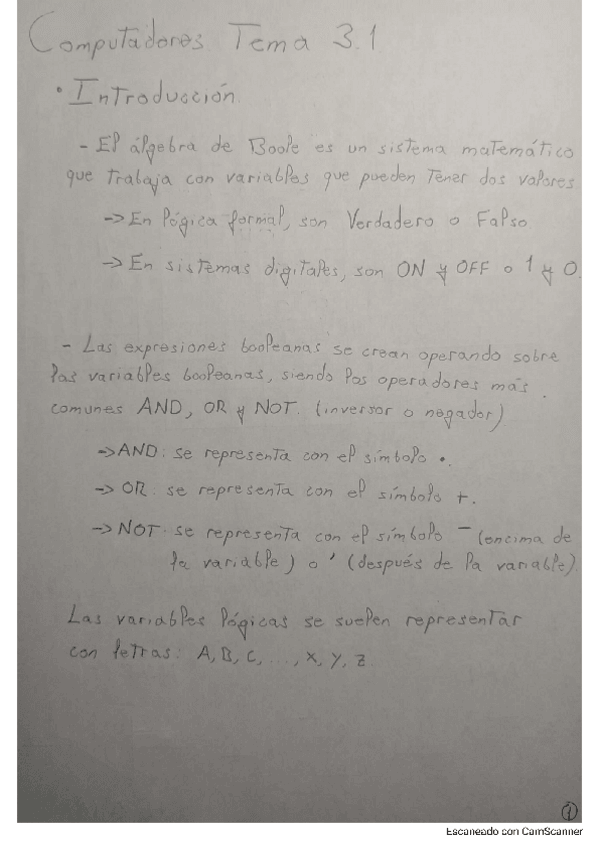 Computadores Tema 3.1
• Introducción.
- El álgebra de Boole es un sistema matemático
que trabaja con variables que pueden tener dos valores
-> En lógica formal, son Verdadero o Falso
-> En sistemas digitales, son ON y OFF o 1 y 0.
- Las expresiones booleanas se crean operando sobre
las variables booleanas, siendo los operadores más
comunes AND, OR y NOT. (inversor o negador)
-> AND: se representa con el símbolo •.
-> OR: se representa con el símbolo +.
-> NOT: se representa con el símbolo ‾ (encima de
la variable) o ' (después de la variable).
Las variables lógicas se suelen representar
con letras: A, B, C, ..., X, Y, Z.
1
Escaneado con CamScanner